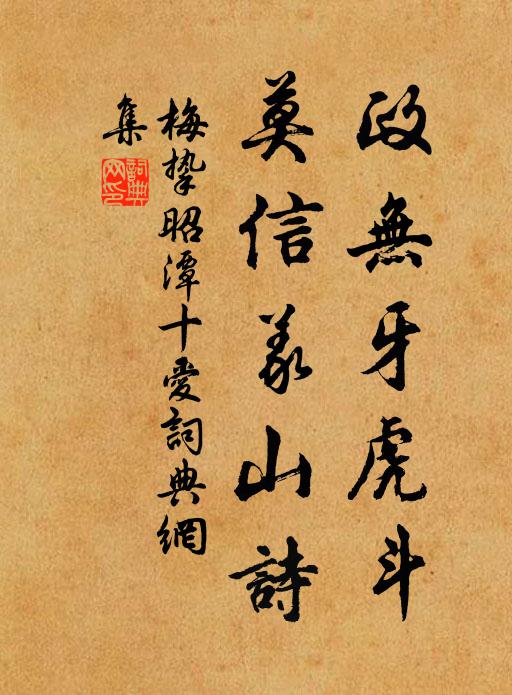 政無牙虎斗
莫信義山詩
梅摯昭潭十愛詞典網
集
詞典網印